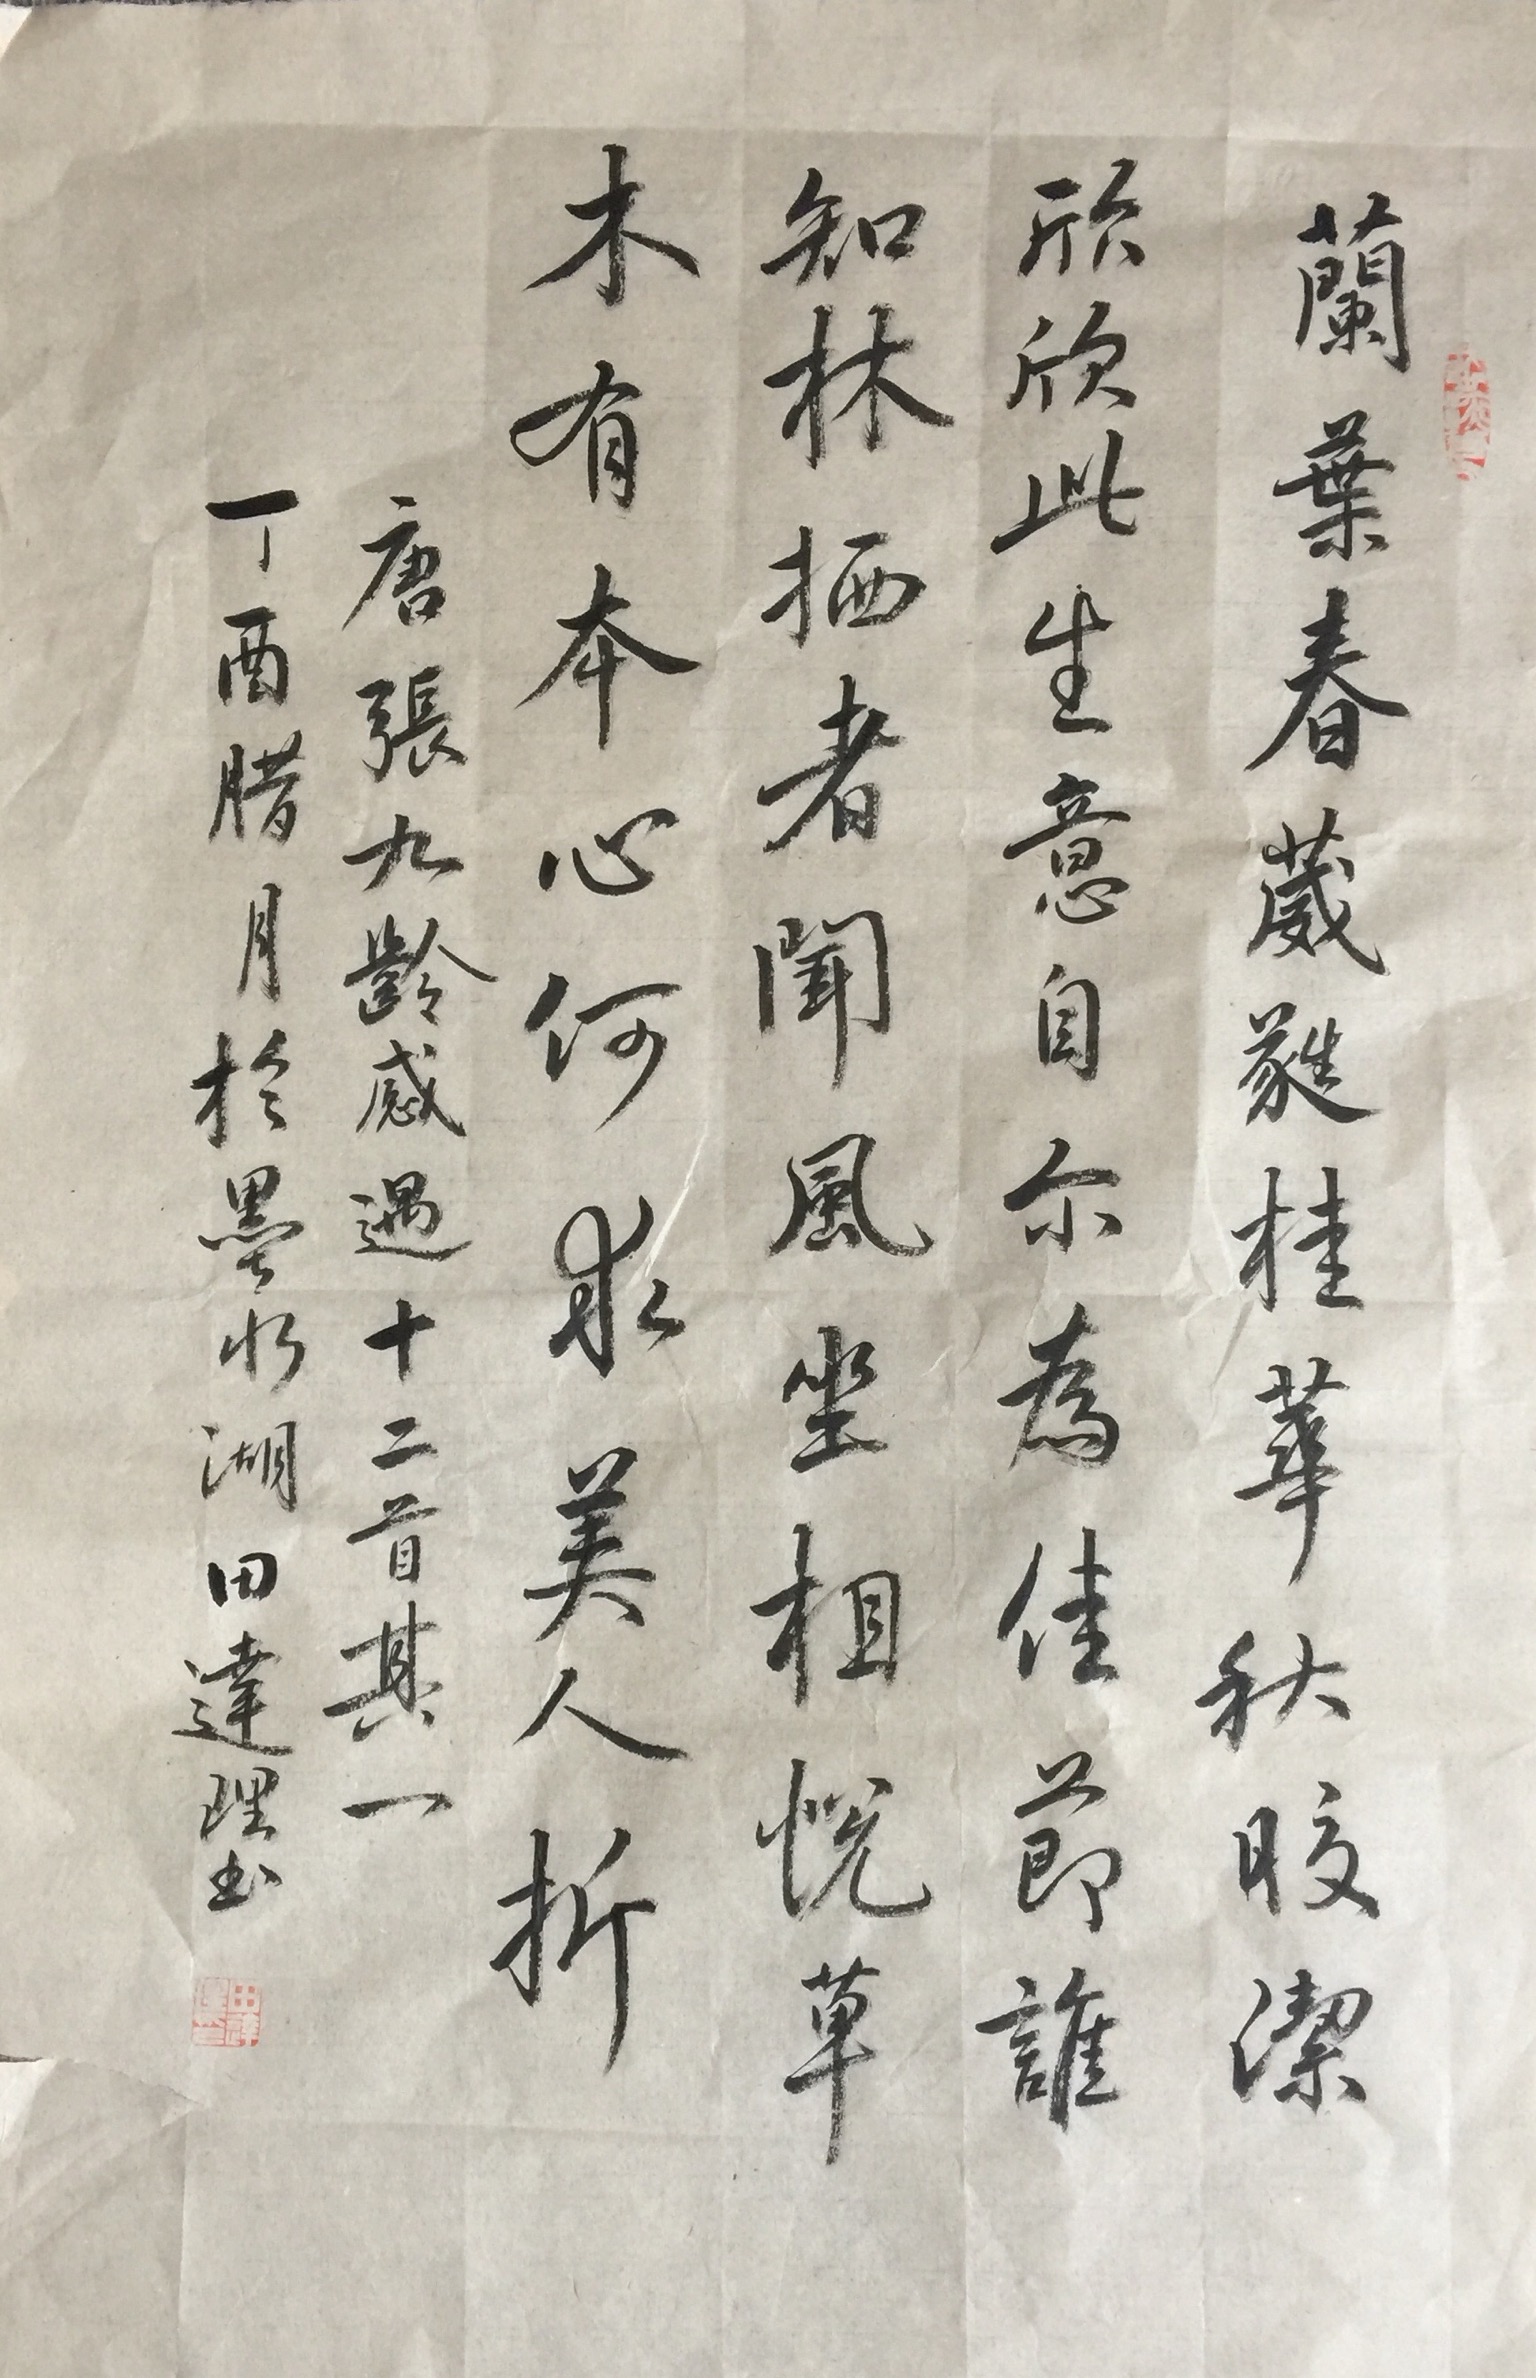 蘭葉春葳蕤桂華秋皎潔
欣欣此生意自尔為佳節誰
知林栖者聞風坐相悦草
木有本心何求美人折
唐張九齡感遇十二首其一
丁酉腊月於墨水湖田達理书